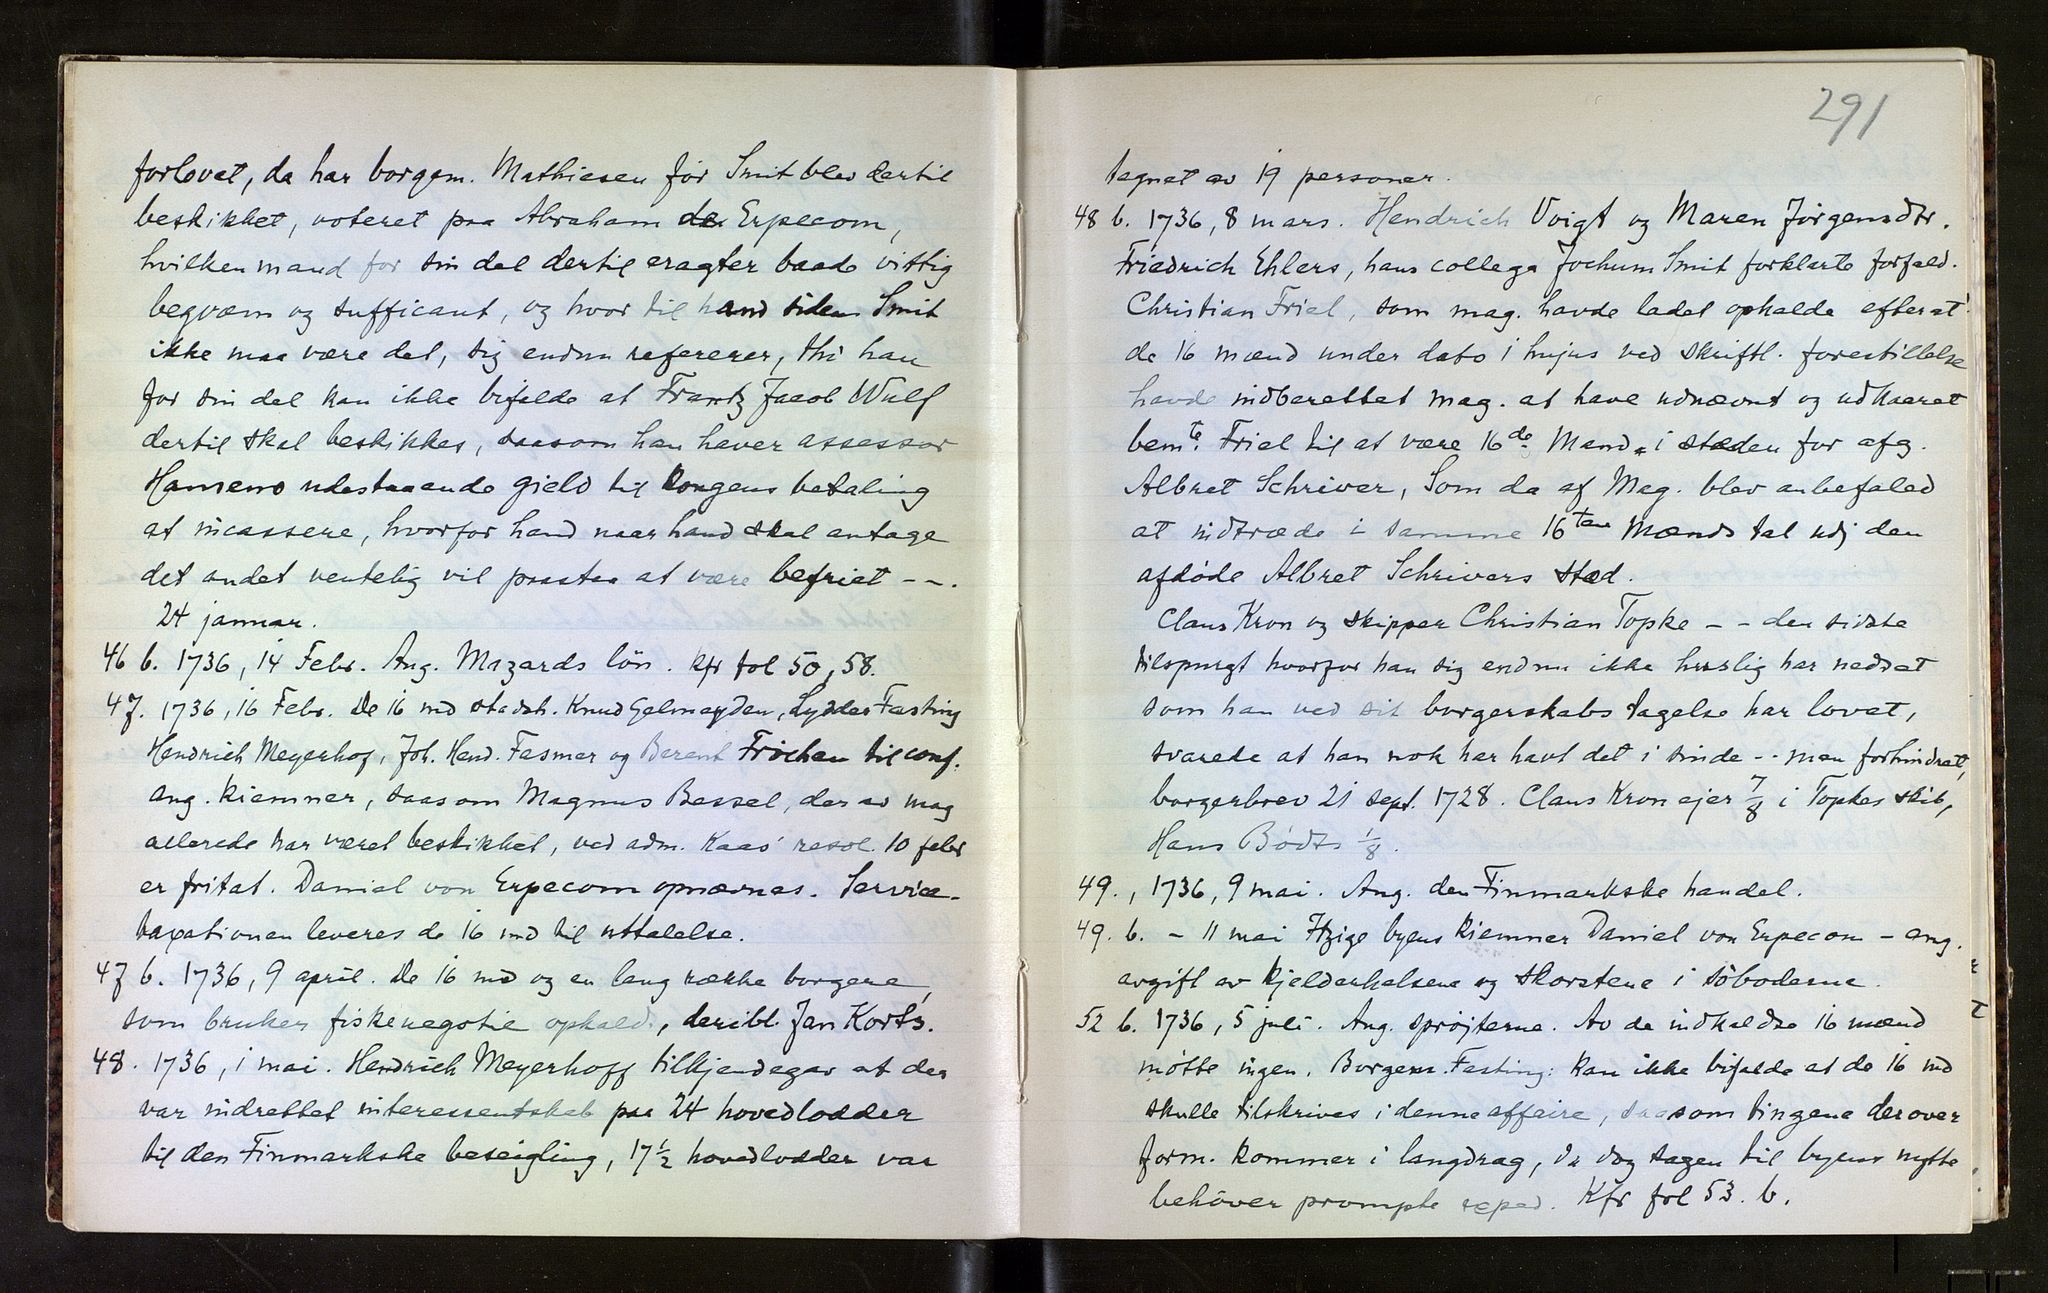 forlovet, da har borgem. Mathiesen før Smit blev dertil
beskikket, voteret paa Abraham de Erpecom,
hvilken mand for sin del dertil eragter baade vittig
beqvæm og sufficant, og hvor til hand siden Smit
ikke maa være det, sig endnu refererer, thi han
for sin del kan ikke bifalde at Frantz Jacob Wulf
dertil skal beskikkes, saasom han haver assessor
Hansens udestaaende gield til kongens betaling
at incassere, hvorfor hand naar hand skal antage
det andet ventelig vil paastaa at være befriet - -.
24 januar.
46 b. 1736, 14 Febr. Ang. Mazards løn. kfr fol 50, 58.
47. 1736, 16 Febr. De 16 md stadsh. Knud Gelmeyden, Lyder Fasting
Hendrich Meyerhof, Joh. Hend. Fasmer og Berent Frichen til conf.
ang. kiemner, saasom Magnus Bessel, der av mag
allerede har været beskikket, ved adm. Kaas' resol. 10 febr
er fritat. Daniel von Erpecom opnævnes. Service-
taxationen leveres de 16 md til uttalelse.
47 b. 1736, 9 april. De 16 md og en lang række borgere,
som bruker fiskenegotie opkald., deribl. Jan Korts.
48. 1736, 1 mai. Hendrich Meyerhoff tilkjendegav at der
var indrettet interessentskab paa 24 hovedlodder
til den Finmarkske beseigling, 17½ hovedlodder var
291
tegnet av 19 personer.
48 b. 1736, 8 mars. Hendrich Voigt og Maren Jørgensdtr.
Friedrich Ehlers, hans collega Jochum Smit forklarte forfald.
Christian Friel, som mag. havde ladet opkalde efterat
de 16 mænd under dato 1 hujus ved skriftl. forestillelse
havde indberettet mag. at have udnævnt og udkaaret
bemte. Friel til at være 16de Mand i stæden for afg.
Albret Schriver, Som da af Mag. blev anbefaled
at indtræde i samme 16ten Mænds tal udj den
afdøde Albret Schrivers stæd.
Claus Kron og skipper Christian Topke - - den sidste
tilspurgt hvorfor han sig endnu ikke huslig har nedsat
som han ved sit borgerskabs tagelse har lovet,
svarede at han nok har havt det i sinde - - men forhindret,
borgerbrev 21 sept. 1728. Claus Kron ejer 7/8 i Topkes skib,
Hans Bødts 1/8.
49., 1736, 9 mai. Ang. den Finmarkske handel.
49. b. - 11 mai Itzige byens kiemner Daniel von Erpecom - ang.
avgift av kjelderhalsene og skorstene i søboderne.
52 b. 1736, 5 juli. Ang. sprøjterne. Av de indkaldte 16 mænd
møtte ingen. Borgem. Fasting: kan ikke bifalde at de 16 md
skulle tilskrives i denne affaire, saasom tingene derover
form. kommer i langdrag, da dog sagen til byens nytte
behøver prompte reped. Kfr fol 53. b.